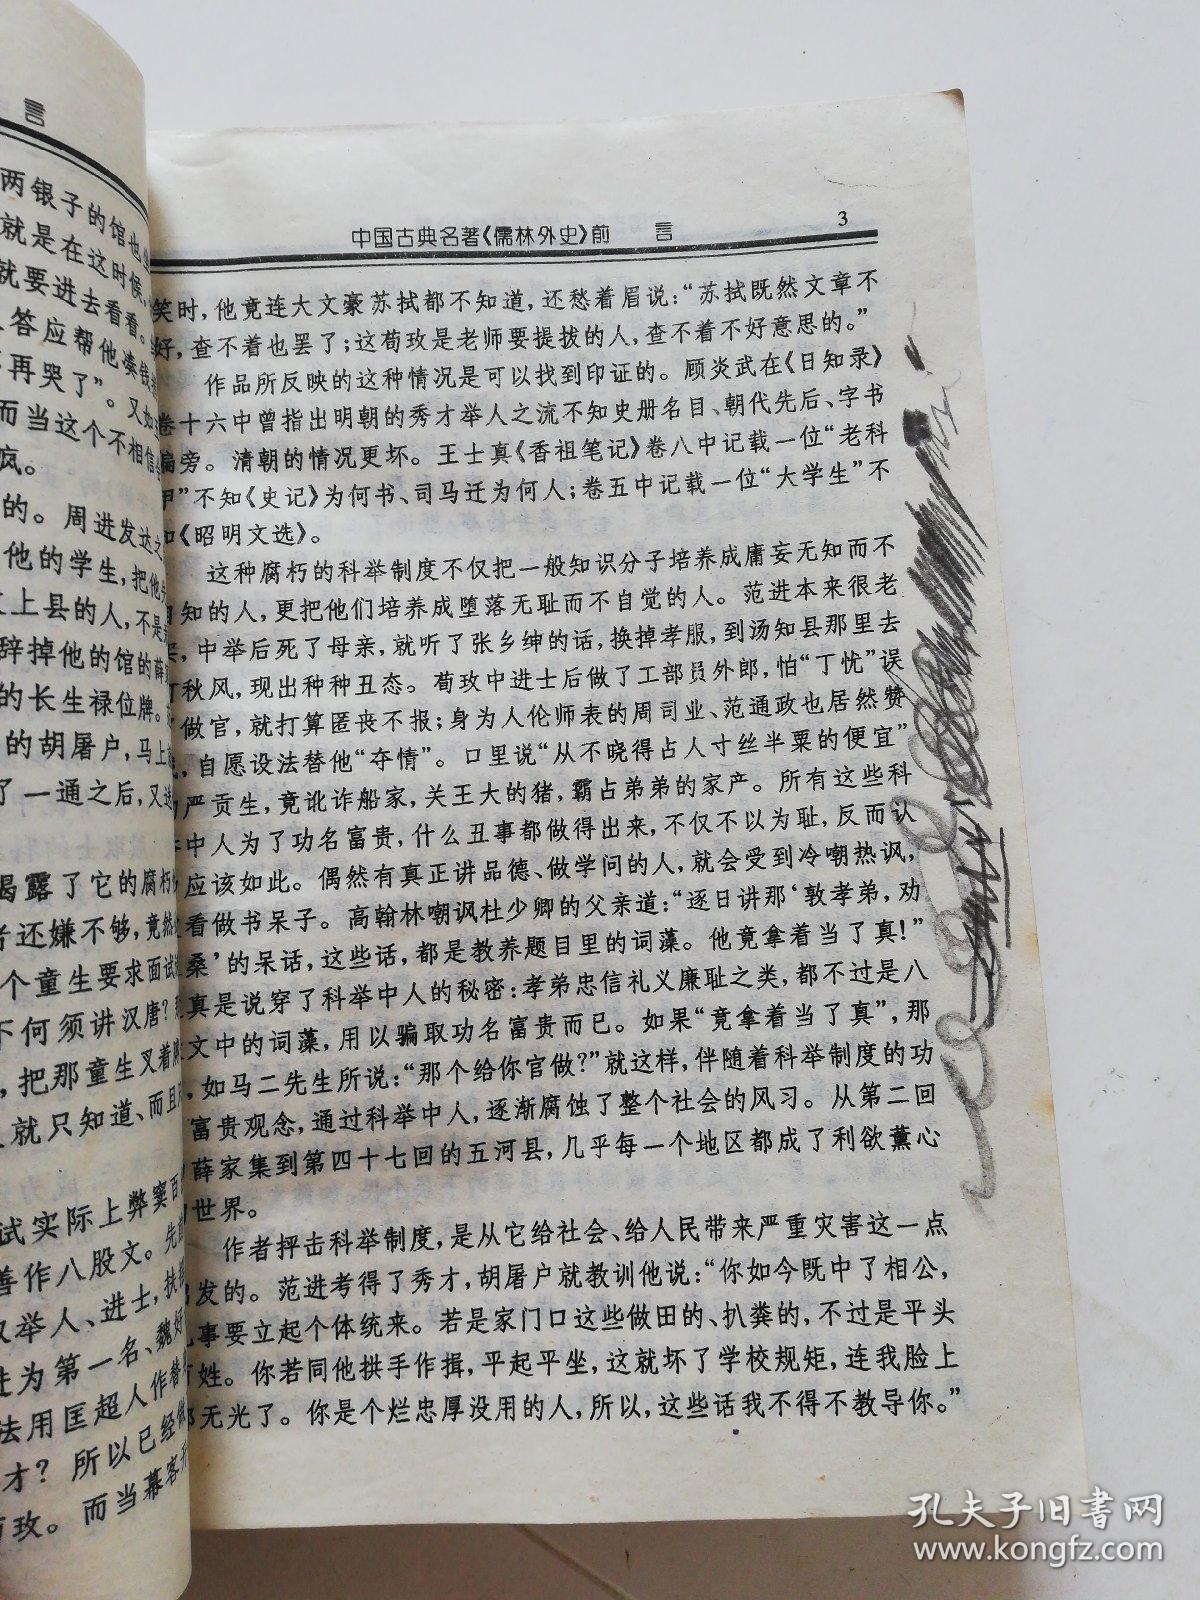 言
两银子的馆也
就是在这时候,
就要进去看看。
答应帮他凑钱
再哭了”。又如
而当这个不相信
疯。
的。周进发达之
他的学生,把他
上县的人,不是
辞掉他的馆的薛
的长生禄位牌。
的胡屠户,马上
了一通之后,又送
揭露了它的腐朽
者还嫌不够,竟然
个童生要求面试
不何须讲汉唐?
,把那童生叉着
就只知道、而且
试实际上弊窦百
善作八股文。先
取举人、进士,扶
进为第一名、魏好
法用匡超人作替
才?所以已经做
玫。而当幕客
中国古典名著《儒林外史》前 言 3
笑时,他竟连大文豪苏轼都不知道,还愁着眉说:“苏轼既然文章不
好,查不着也罢了;这荀玫是老师要提拔的人,查不着不好意思的。”
作品所反映的这种情况是可以找到印证的。顾炎武在《日知录》
卷十六中曾指出明朝的秀才举人之流不知史册名目、朝代先后、字书
偏旁。清朝的情况更坏。王士真《香祖笔记》卷八中记载一位“老科
甲”不知《史记》为何书、司马迁为何人;卷五中记载一位“大学生”不
知《昭明文选》。
这种腐朽的科举制度不仅把一般知识分子培养成庸妄无知而不
知的人,更把他们培养成堕落无耻而不自觉的人。范进本来很老
,中举后死了母亲,就听了张乡绅的话,换掉孝服,到汤知县那里去
秋风,现出种种丑态。荀玫中进士后做了工部员外郎,怕“丁忧”误
做官,就打算匿丧不报;身为人伦师表的周司业、范通政也居然赞
,自愿设法替他“夺情”。口里说“从不晓得占人寸丝半粟的便宜”
严贡生,竟讹诈船家,关王大的猪,霸占弟弟的家产。所有这些科
中人为了功名富贵,什么丑事都做得出来,不仅不以为耻,反而认
应该如此。偶然有真正讲品德、做学问的人,就会受到冷嘲热讽,
看做书呆子。高翰林嘲讽杜少卿的父亲道:“逐日讲那‘敦孝弟,劝
桑’的呆话,这些话,都是教养题目里的词藻。他竟拿着当了真!”
真是说穿了科举中人的秘密:孝弟忠信礼义廉耻之类,都不过是八
文中的词藻,用以骗取功名富贵而已。如果“竟拿着当了真”,那
,如马二先生所说:“那个给你官做?”就这样,伴随着科举制度的功
富贵观念,通过科举中人,逐渐腐蚀了整个社会的风习。从第二回
薛家集到第四十七回的五河县,几乎每一个地区都成了利欲薰心
世界。
作者抨击科举制度,是从它给社会、给人民带来严重灾害这一点
发的。范进考得了秀才,胡屠户就教训他说:“你如今既中了相公,
事要立起个体统来。若是家门口这些做田的、扒粪的,不过是平头
姓。你若同他拱手作揖,平起平坐,这就坏了学校规矩,连我脸上
无光了。你是个烂忠厚没用的人,所以,这些话我不得不教导你。”
孔夫子旧书网
www.kongfz.com